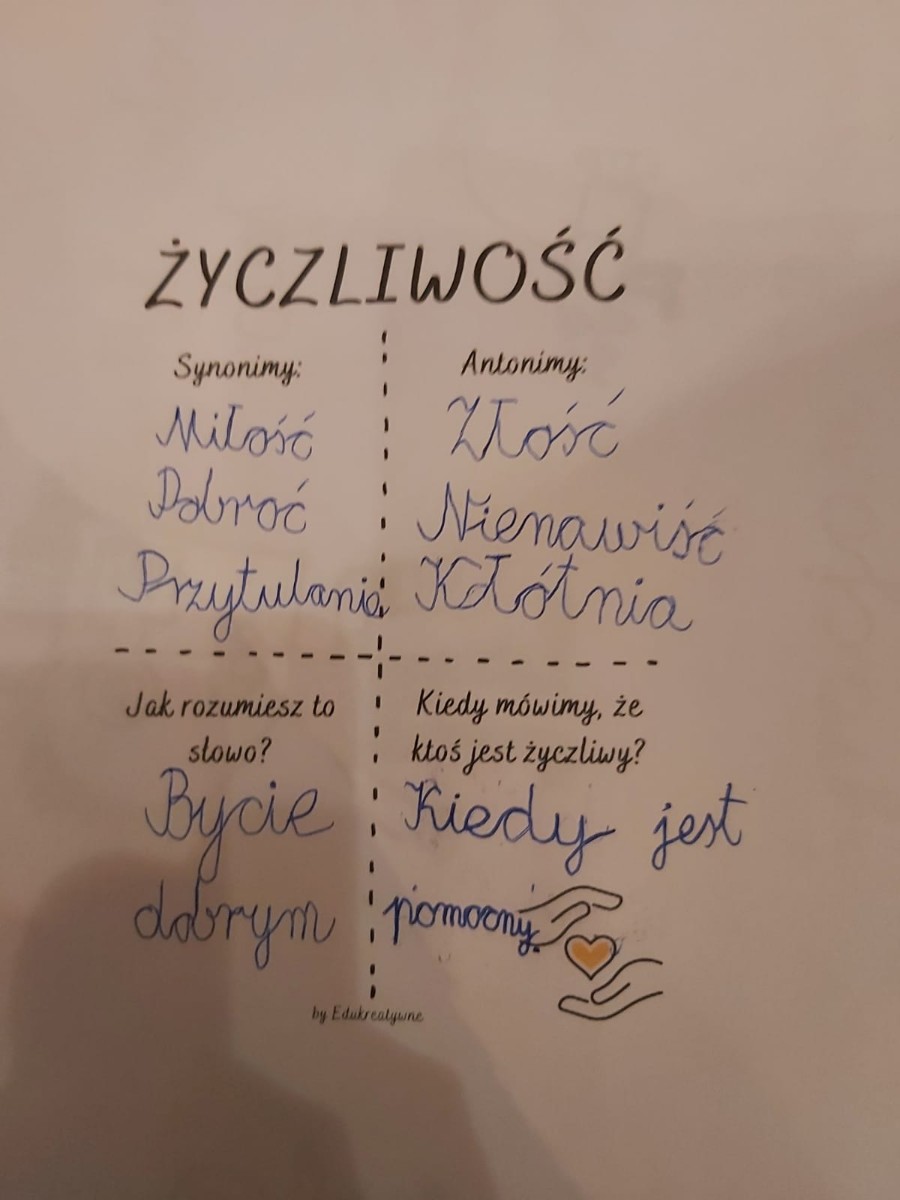 ŻYCZLIWOŚĆ
Synonimy:
Miłość
Dobroć
Przytulania
Antonimy:
Złość
Nienawiść
Kłótnia
Jak rozumiesz to
słowo?
Bycie
dobrym
Kiedy mówimy, że
ktoś jest życzliwy?
Kiedy jest
pomocny.
by Edukreatywne